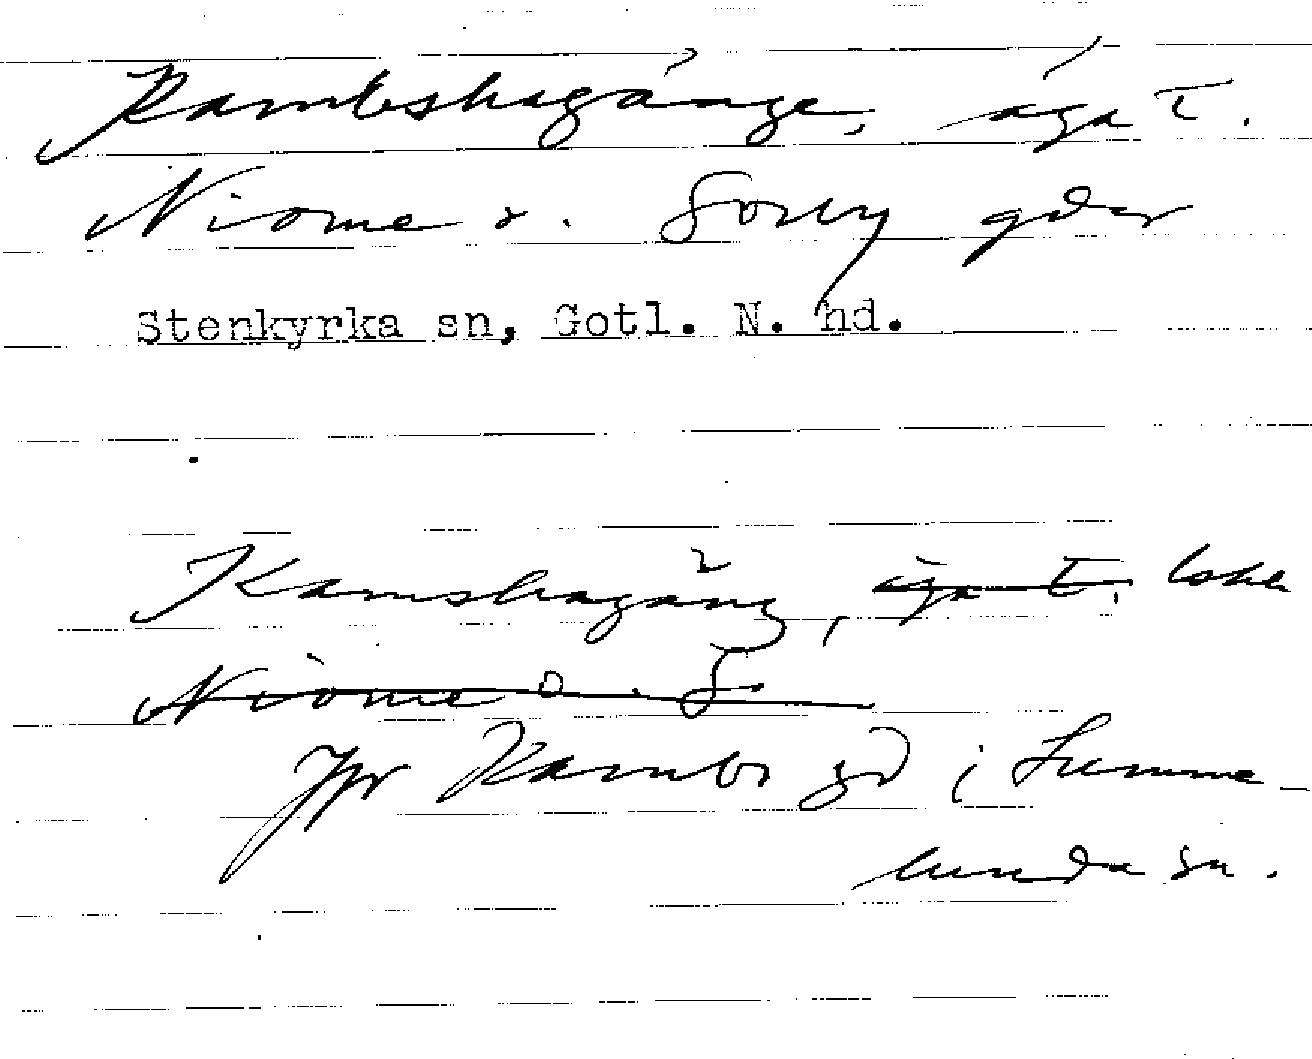 Kambshagänge, äga t.
Niome o. Sorby gdar
Stenkyrka sn, Gotl. N. hd.
Kamshagäng, äga t.
Niome o. S.
Jfr Kambs gd i Lumme-
lunda sn.